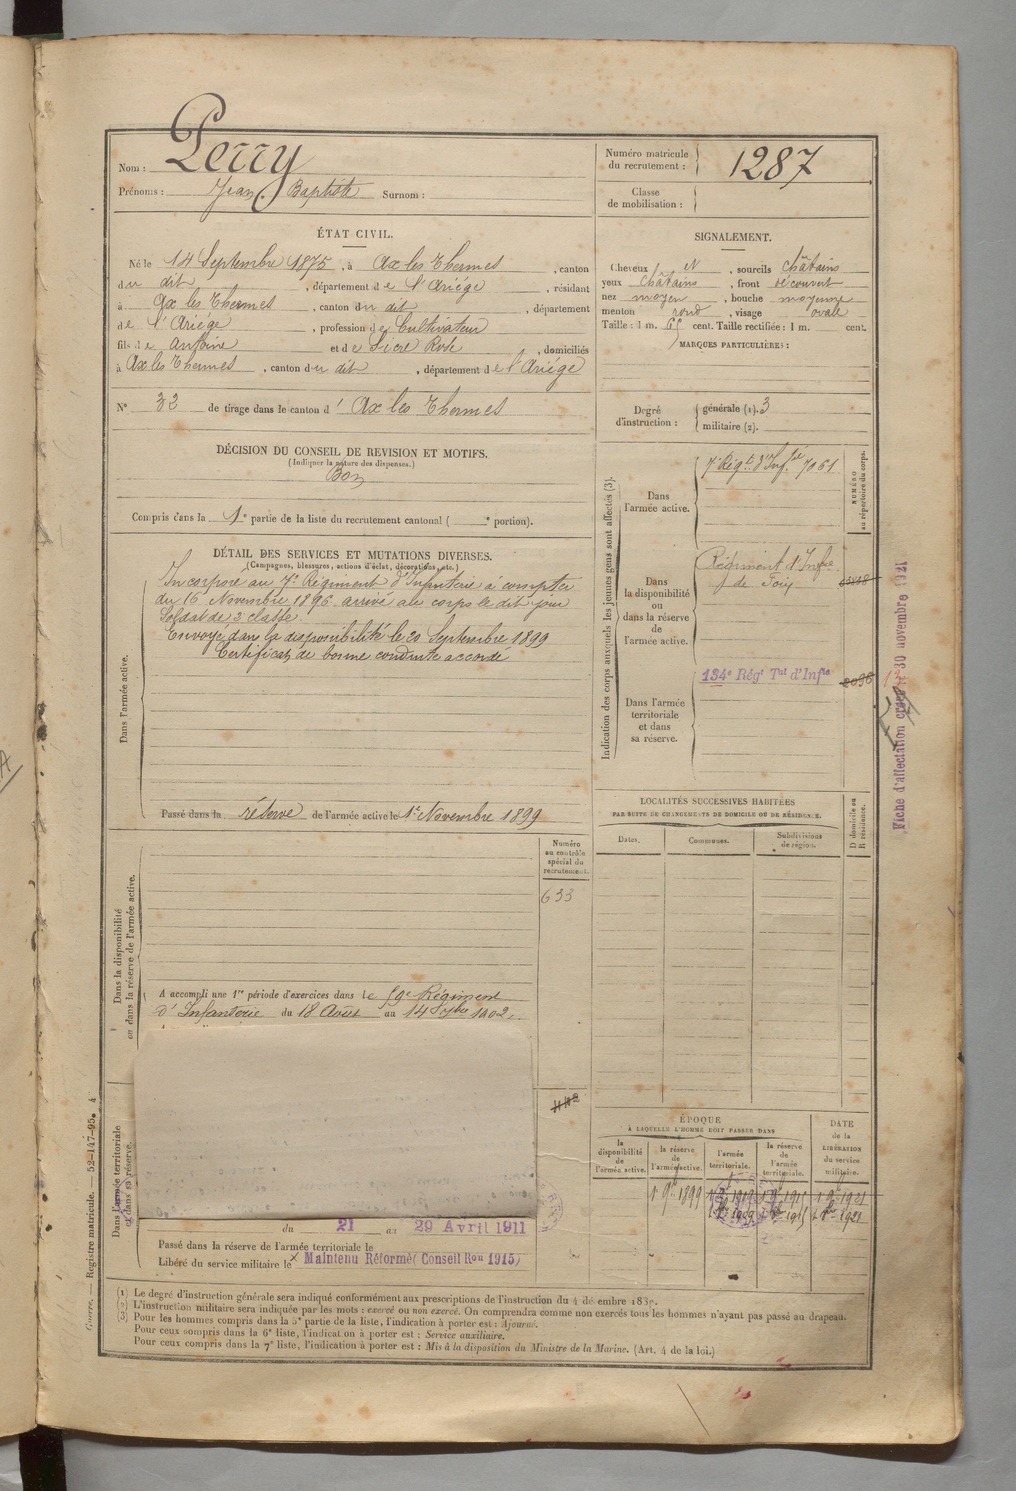 Nom : Perry
Prénoms : Jean Baptiste Surnom :
Numéro matricule du recrutement : 1287
Classe de mobilisation :
ÉTAT CIVIL.
Né le 14 Septembre 1875, à Ax les Thermes, canton
du dit, département de l'Ariége, résidant
à Ax les Thermes, canton du dit, département
de l'Ariége, profession de Cultivateur
fils de Antoine et de Sicre Rose, domiciliés
à Ax les Thermes, canton du dit, département de l'Ariége
N° 32 de tirage dans le canton d' Ax les Thermes
SIGNALEMENT.
Cheveux et, sourcils châtains
yeux châtains, front découvert
nez moyen, bouche moyenne
menton rond, visage ovale
Taille : 1 m. 65 cent. Taille rectifiée : 1 m. cent.
MARQUES PARTICULIÈRES :
Degré d'instruction :
générale (1). 3
militaire (2).
DÉCISION DU CONSEIL DE REVISION ET MOTIFS.
(Indiquer la nature des dispenses.)
Bon
Compris dans la 1e partie de la liste du recrutement cantonal ( e portion).
DÉTAIL DES SERVICES ET MUTATIONS DIVERSES.
(Campagnes, blessures, actions d'éclat, décorations, etc.)
Dans l'armée active.
Incorporé au 7e Régiment d'Infanterie à compter
du 16 Novembre 1896 arrivé au corps le dit jour
Soldat de 2e classe.
Envoyé dans la disponibilité le 20 Septembre 1899
Certificat de bonne conduite accordé
Passé dans la réserve de l'armée active le 1er Novembre 1899
Indication des corps auxquels les jeunes gens sont affectés (3).
NUMÉRO au répertoire du corps.
Dans l'armée active.
7e Régt d'Infie 7061
Dans la disponibilité ou dans la réserve de l'armée active.
Régiment d'Infie
de Foix
Dans l'armée territoriale et dans sa réserve.
134e Régt Tal d'Infie 2096
Fiche d'affectation créée le 30 novembre 1921
LOCALITÉS SUCCESSIVES HABITÉES
PAR SUITE DE CHANGEMENTS DE DOMICILE OU DE RÉSIDENCE.
Dates. Communes. Subdivisions de région. D domicile ou R résidence.
Dans la disponibilité ou dans la réserve de l'armée active.
Numéro au contrôle spécial du recrutement.
633
A accompli une 1re période d'exercices dans le 59e Régiment
d'Infanterie du 18 Août au 14 7bre 1902.
Dans l'armée territoriale et dans sa réserve.
du 21 au 29 Avril 1911
Passé dans la réserve de l'armée territoriale le
Libéré du service militaire le Maintenu Réformé (Conseil Ron 1915)
ÉPOQUE
À LAQUELLE L'HOMME DOIT PASSER DANS
la disponibilité de l'armée active. la réserve de l'armée active. l'armée territoriale. la réserve de l'armée territoriale. DATE de la LIBÉRATION du service militaire.
1 9bre 1899
Guerre. — Registre matricule. — 52-147-95. 4
(1) Le degré d'instruction générale sera indiqué conformément aux prescriptions de l'instruction du 4 décembre 1889.
(2) L'instruction militaire sera indiquée par les mots : exercé ou non exercé. On comprendra comme non exercés tous les hommes n'ayant pas passé au drapeau.
(3) Pour les hommes compris dans la 5e partie de la liste, l'indication à porter est : Ajourné.
Pour ceux compris dans la 6e liste, l'indication à porter est : Service auxiliaire.
Pour ceux compris dans la 7e liste, l'indication à porter est : Mis à la disposition du Ministre de la Marine. (Art. 4 de la loi.)